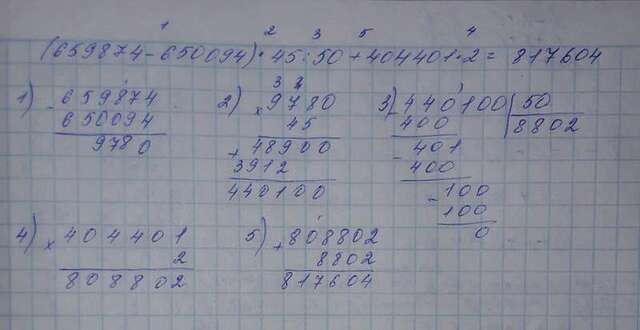 1 2 3 5 4
(659874-650094)·45:50+404401·2=817604
1) 2) 3 4 3)
-659874 ×9780 -440100 50
650094 45 400 8802
9780 +48900 -401
3912 400
440100 -100
100
0
4) ×404401 5) +808802
2 8802
808802 817604